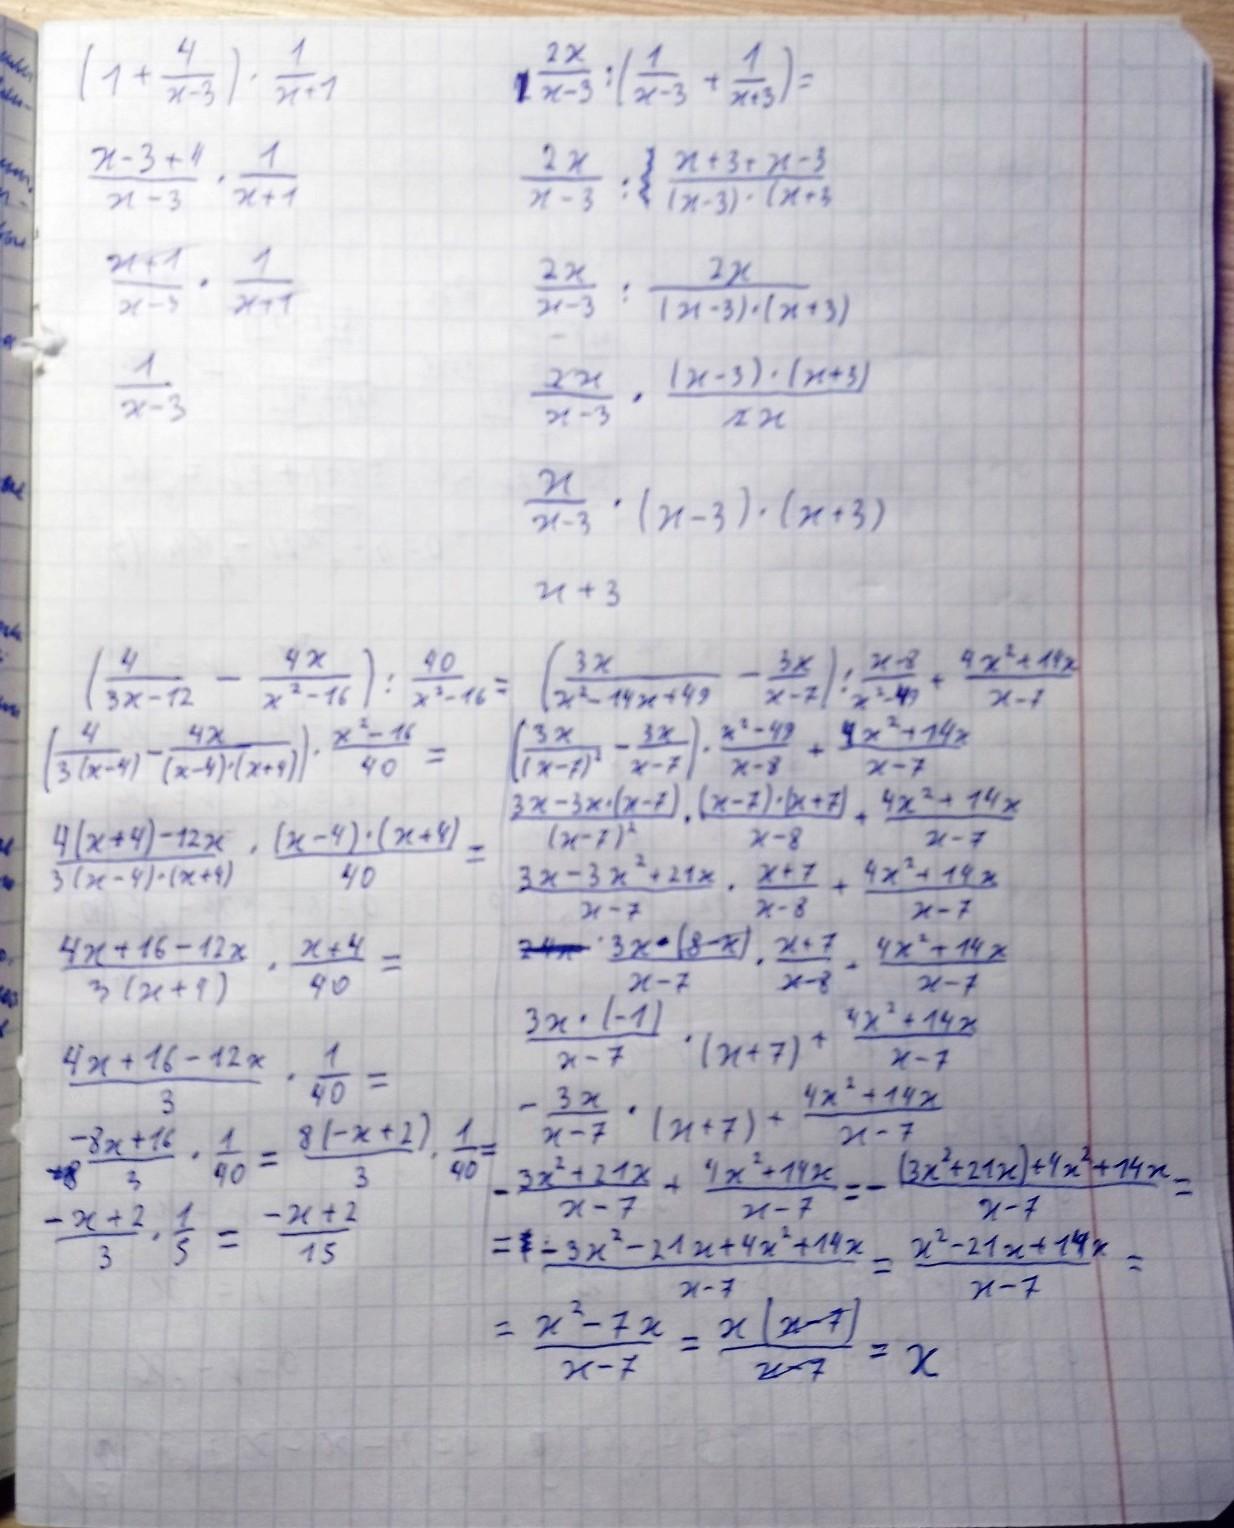 (1 + 4/(x-3)) · 1/(x+1)
(x-3+4)/(x-3) · 1/(x+1)
(x+1)/(x-3) · 1/(x+1)
1/(x-3)
2x/(x-3) : (1/(x-3) + 1/(x+3)) =
2x/(x-3) : (x+3+x-3)/((x-3)·(x+3
2x/(x-3) : 2x/((x-3)·(x+3))
2x/(x-3) · ((x-3)·(x+3))/2x
x/(x-3) · (x-3)·(x+3)
x+3
(4/(3x-12) - 4x/(x²-16)) : 40/(x²-16) =
(4/(3(x-4)) - 4x/((x-4)·(x+4))) · (x²-16)/40 =
(4(x+4)-12x)/(3(x-4)·(x+4)) · ((x-4)·(x+4))/40 =
(4x+16-12x)/(3(x+4)) · (x+4)/40 =
(4x+16-12x)/3 · 1/40 =
(-8x+16)/3 · 1/40 = 8(-x+2)/3 · 1/40 =
(-x+2)/3 · 1/5 = (-x+2)/15
(3x/(x²-14x+49) - 3x/(x-7)) : (x-8)/(x²-49) + (4x²+14x)/(x-7)
(3x/(x-7)² - 3x/(x-7)) · (x²-49)/(x-8) + (4x²+14x)/(x-7)
(3x-3x·(x-7))/(x-7)² · ((x-7)·(x+7))/(x-8) + (4x²+14x)/(x-7)
(3x-3x²+21x)/(x-7) · (x+7)/(x-8) + (4x²+14x)/(x-7)
(3x·(8-x))/(x-7) · (x+7)/(x-8) + (4x²+14x)/(x-7)
(3x·(-1))/(x-7) · (x+7) + (4x²+14x)/(x-7)
- 3x/(x-7) · (x+7) + (4x²+14x)/(x-7)
- (3x²+21x)/(x-7) + (4x²+14x)/(x-7) = - ((3x²+21x)+4x²+14x)/(x-7) =
= (-3x²-21x+4x²+14x)/(x-7) = (x²-21x+14x)/(x-7) =
= (x²-7x)/(x-7) = x(x-7)/(x-7) = x